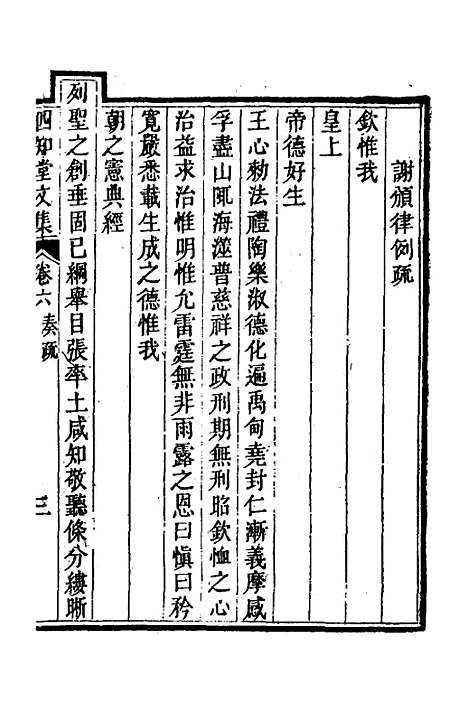 謝頒律例疏
欽惟我
皇上
帝德好生
王心勅法禮陶樂淑德化遍禹甸堯封仁漸義摩感
孚盡山陬海澨普慈祥之政刑期無刑昭欽恤之心
治益求治惟明惟允雷霆無非雨露之恩曰慎曰矜
寬嚴悉載生成之德惟我
朝之憲典經
列聖之創垂固已綱舉目張率土咸知敬聽條分縷晰
四知堂文集 卷六 奏疏 三